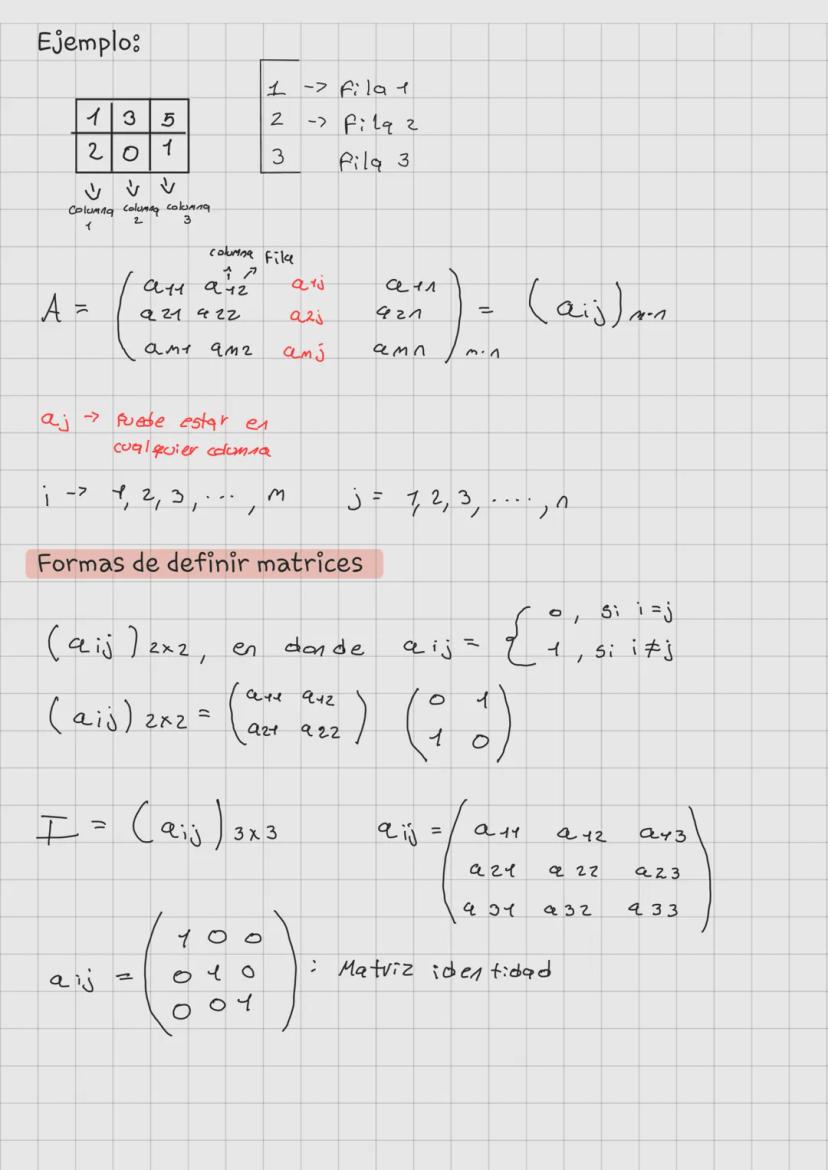 Ejemplo:
1 -> fila 1
2 -> fila 2
3 fila 3
1 3 5
2 0 1
columna 1 columna 2 columna 3
columna fila
A = ( a11 a12 a1j a1n
a21 a22 a2j a2n
am1 am2 amj amn ) m·n = (aij) m·n
aj -> Puede estar en
cualquier columna
i -> 1, 2, 3, ..., m j = 1, 2, 3, ...., n
Formas de definir matrices
(aij) 2x2, en donde aij = { 0, si i=j
1, si i≠j
(aij) 2x2 = ( a11 a12 ) ( 0 1 )
( a21 a22 ) ( 1 0 )
I = (aij) 3x3 aij = ( a11 a12 a13
a21 a22 a23
a31 a32 a33 )
aij = ( 1 0 0
0 1 0
0 0 1 ) : Matriz identidad